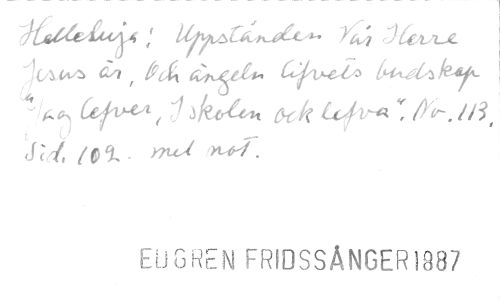 Halleluja! Uppstånden Vår Herre
Jesus är, Och ängeln lifvets budskap
"Jag lefver, I skolen ock lefva". No. 113.
Sid. 102. med not.
EUGREN FRIDSSÅNGER 1887